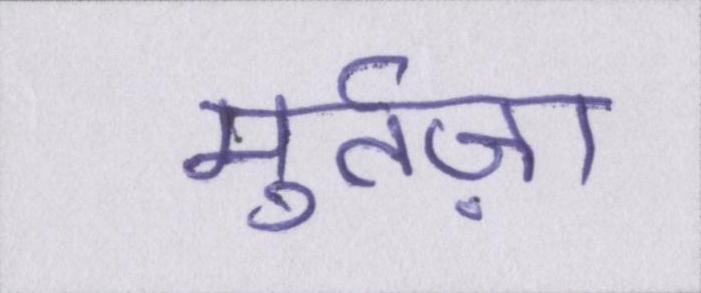 मुर्तज़ा